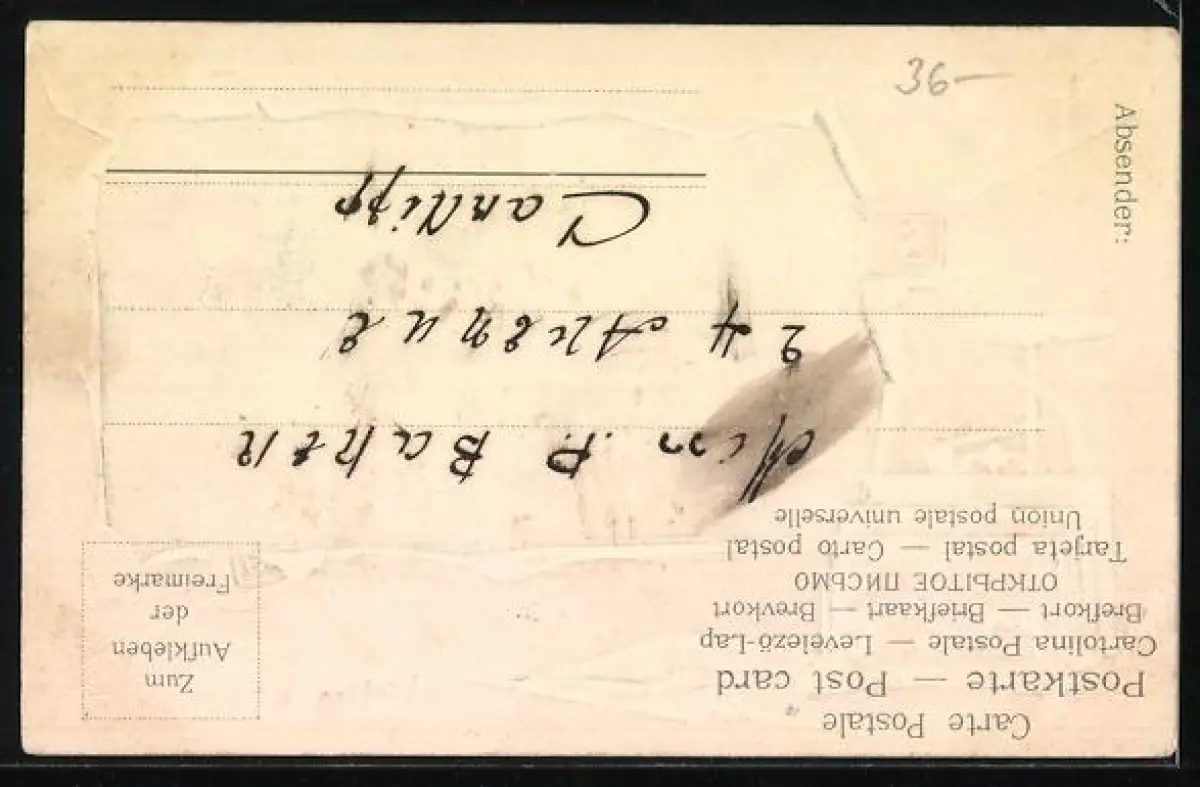 Carte Postale
Postkarte — Post card
Cartolina Postale — Levelező-Lap
Brefkort — Briefkaart — Brevkort
ОТКРЫТОЕ ПИСЬМО
Tarjeta postal — Carto postal
Union postale universelle
Zum
Aufkleben
der
Freimarke
Miss P. Baker
24 Avenue
Cardiff
Absender:
36–